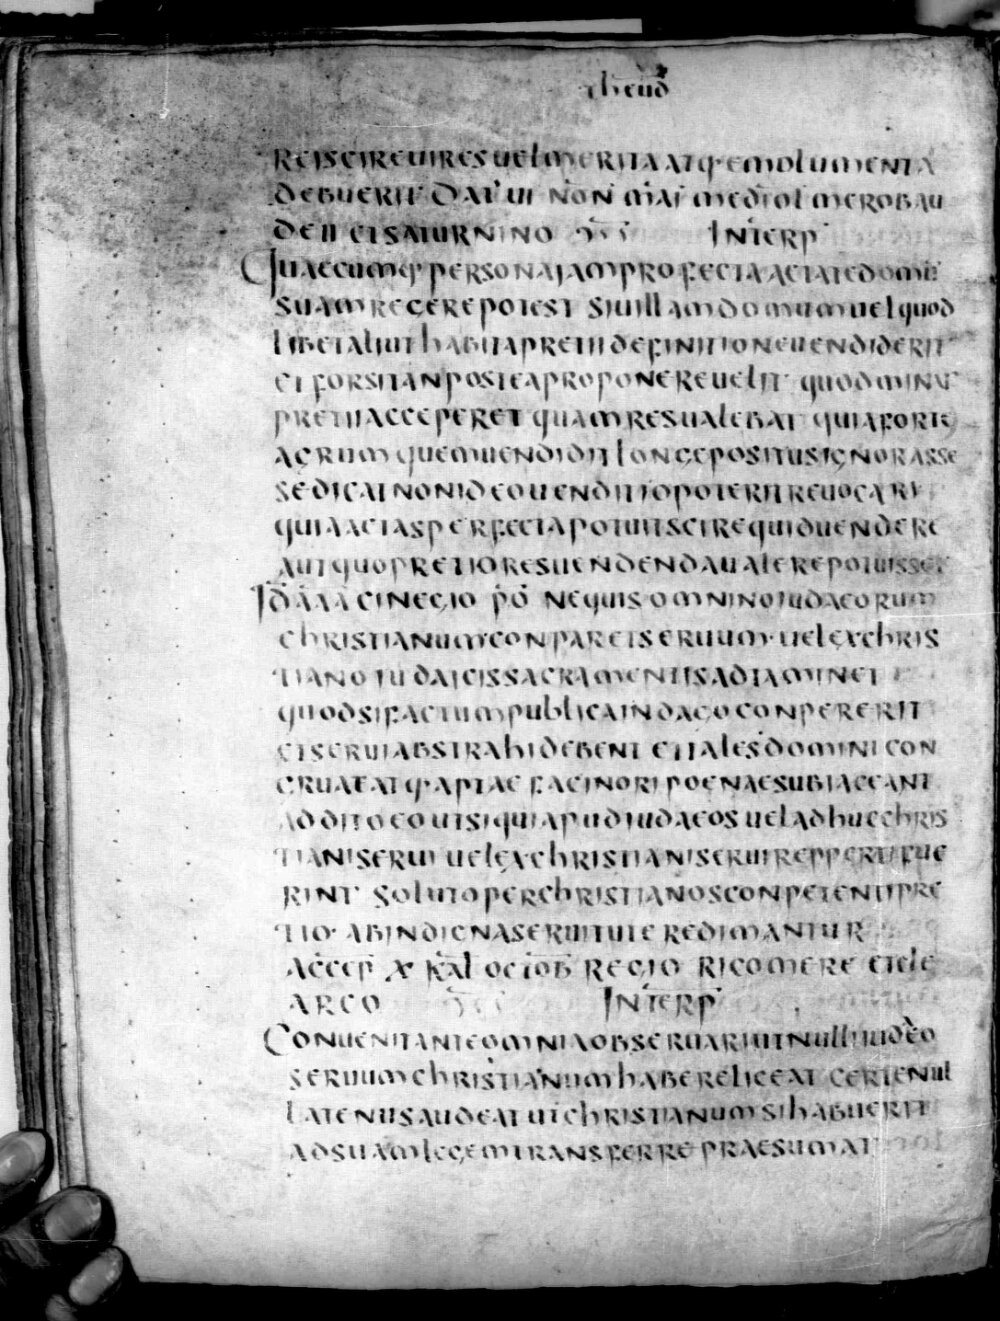 theud
REI SCIRE VIRES VEL MERITA ATQ· EMOLUMENTA
DEBUERIT DAT VI NON MAI MEDIOL MEROBAU
DE II ET SATURNINO INTERP
QUAECUMQ PERSONA IAM PROFECTA AETATE DOMU
SUAM REGERE POTEST SIUILLAM DOMUM UEL QUOD
LIBET ALIUT HABITA PRETII DEFINITIONE UENDIDERIT
ET FORSITAN POSTEA PROPONERE UELIT QUOD MINUS
PRETII ACCEPERET QUAM RES UALEBAT QUIA FORTE
AGRUM QUEM UENDIDIT LONGE POSITUS IGNORASSE
SE DICAT NON IDEO UENDITIO POTERIT REUOCARI
QUIA AETAS PERFECTA POTUIT SCIRE QUID UENDERE
AUT QUO PRETIO RES UENDENDA UALERE POTUISSET
ID AAA CINEGIO PO NE QUIS OMNINO IUDAEORUM
CHRISTIANUM CONPARET SERUUM UEL EX CHRIS
TIANO IUDAICIS SACRAMENTIS ADTAMINET
QUOD SI FACTUM PUBLICA INDAGO CONPERERIT
ET SERUI ABSTRAHI DEBENT ET TALES DOMINI CON
GRUAE ATQ· APTAE FACINORI POENAE SUBIACEANT
ADDITO EO UT SI QUI APUD IUDAEOS UEL ADHUC CHRIS
TIANI SERUI UEL EX CHRISTIANI SERUI REPPERTI FUE
RINT SOLUTO PER CHRISTIANOS CONPETENTI PRE
TIO· AB INDIGNA SERUITUTE REDIMANTUR
ACCEP X KAL OCTOB REGIO RICOMERE ET CLE
ARCO INTERP
CONUENIT ANTE OMNIA OBSERUARI UT NULLI IUDEO
SERUUM CHRISTIANUM HABERE LICEAT CERTE NUL
LATENUS AUDEAT UT CHRISTIANUM SI HABUERIT
AD SUAM LEGEM TRANSFERRE PRAESUMAT